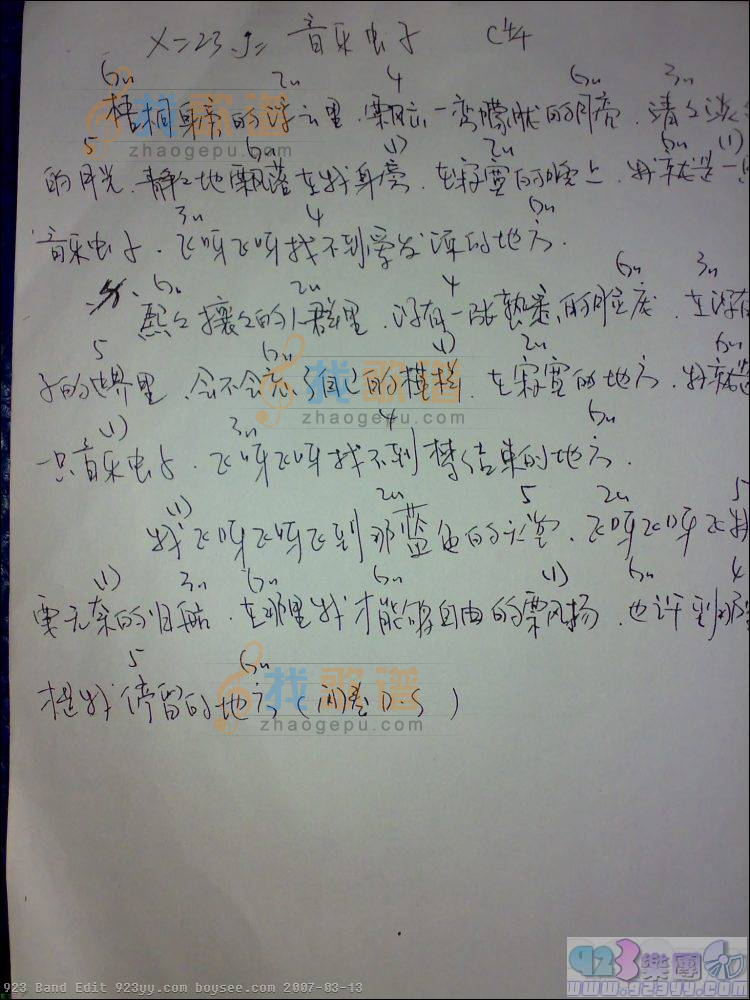 X=23 J= 音乐虫子 C 4/4
6m 2m 4 6m 3m
梧桐 的浮云里.飘忘一弯朦胧的月亮.清々淡
5 6m (1) 2m 6m (1)
的月光.静々地飘落在我身旁.在寂寞的晚上.我就是一只
3m 4 6m
音乐虫子.飞呀飞呀找不到爱发源的地方.
6m 2m 4 6m 3m
熙々攘々的人群里.没有一张熟悉的脸庞.在没有
5 6m (1) 2m 6m
子的世界里.会不会忘了自己的模样.在寂寞的地方.我就是
(1) 3m 4 6m
一只音乐虫子.飞呀飞呀找不到梦结束的地方.
(1) 2m 5 2m 5
我飞呀飞呀飞到那蓝色的天堂.飞呀飞呀飞我
(1) 3m 6m 6m (1) 6m 4
要无奈的归航.在那里我才能够自由的飘扬.也许到那里
5 6m
才是我停留的地方(间奏DS)
找歌谱
zhaogepu.com
找歌谱
zhaogepu.com
找歌谱
zhaogepu.com
923樂團
www.923yy.com
923 Band Edit 923yy.com boysee.com 2007-03-13